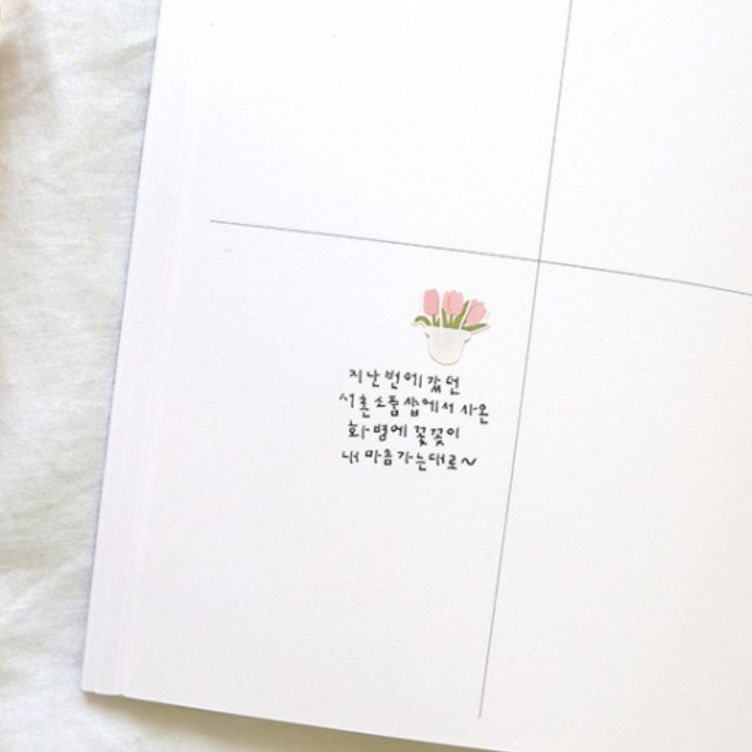 지난번에 갔던
서촌 소품샵에서 사온
화병에 꽃꽂이
내 마음가는대로~